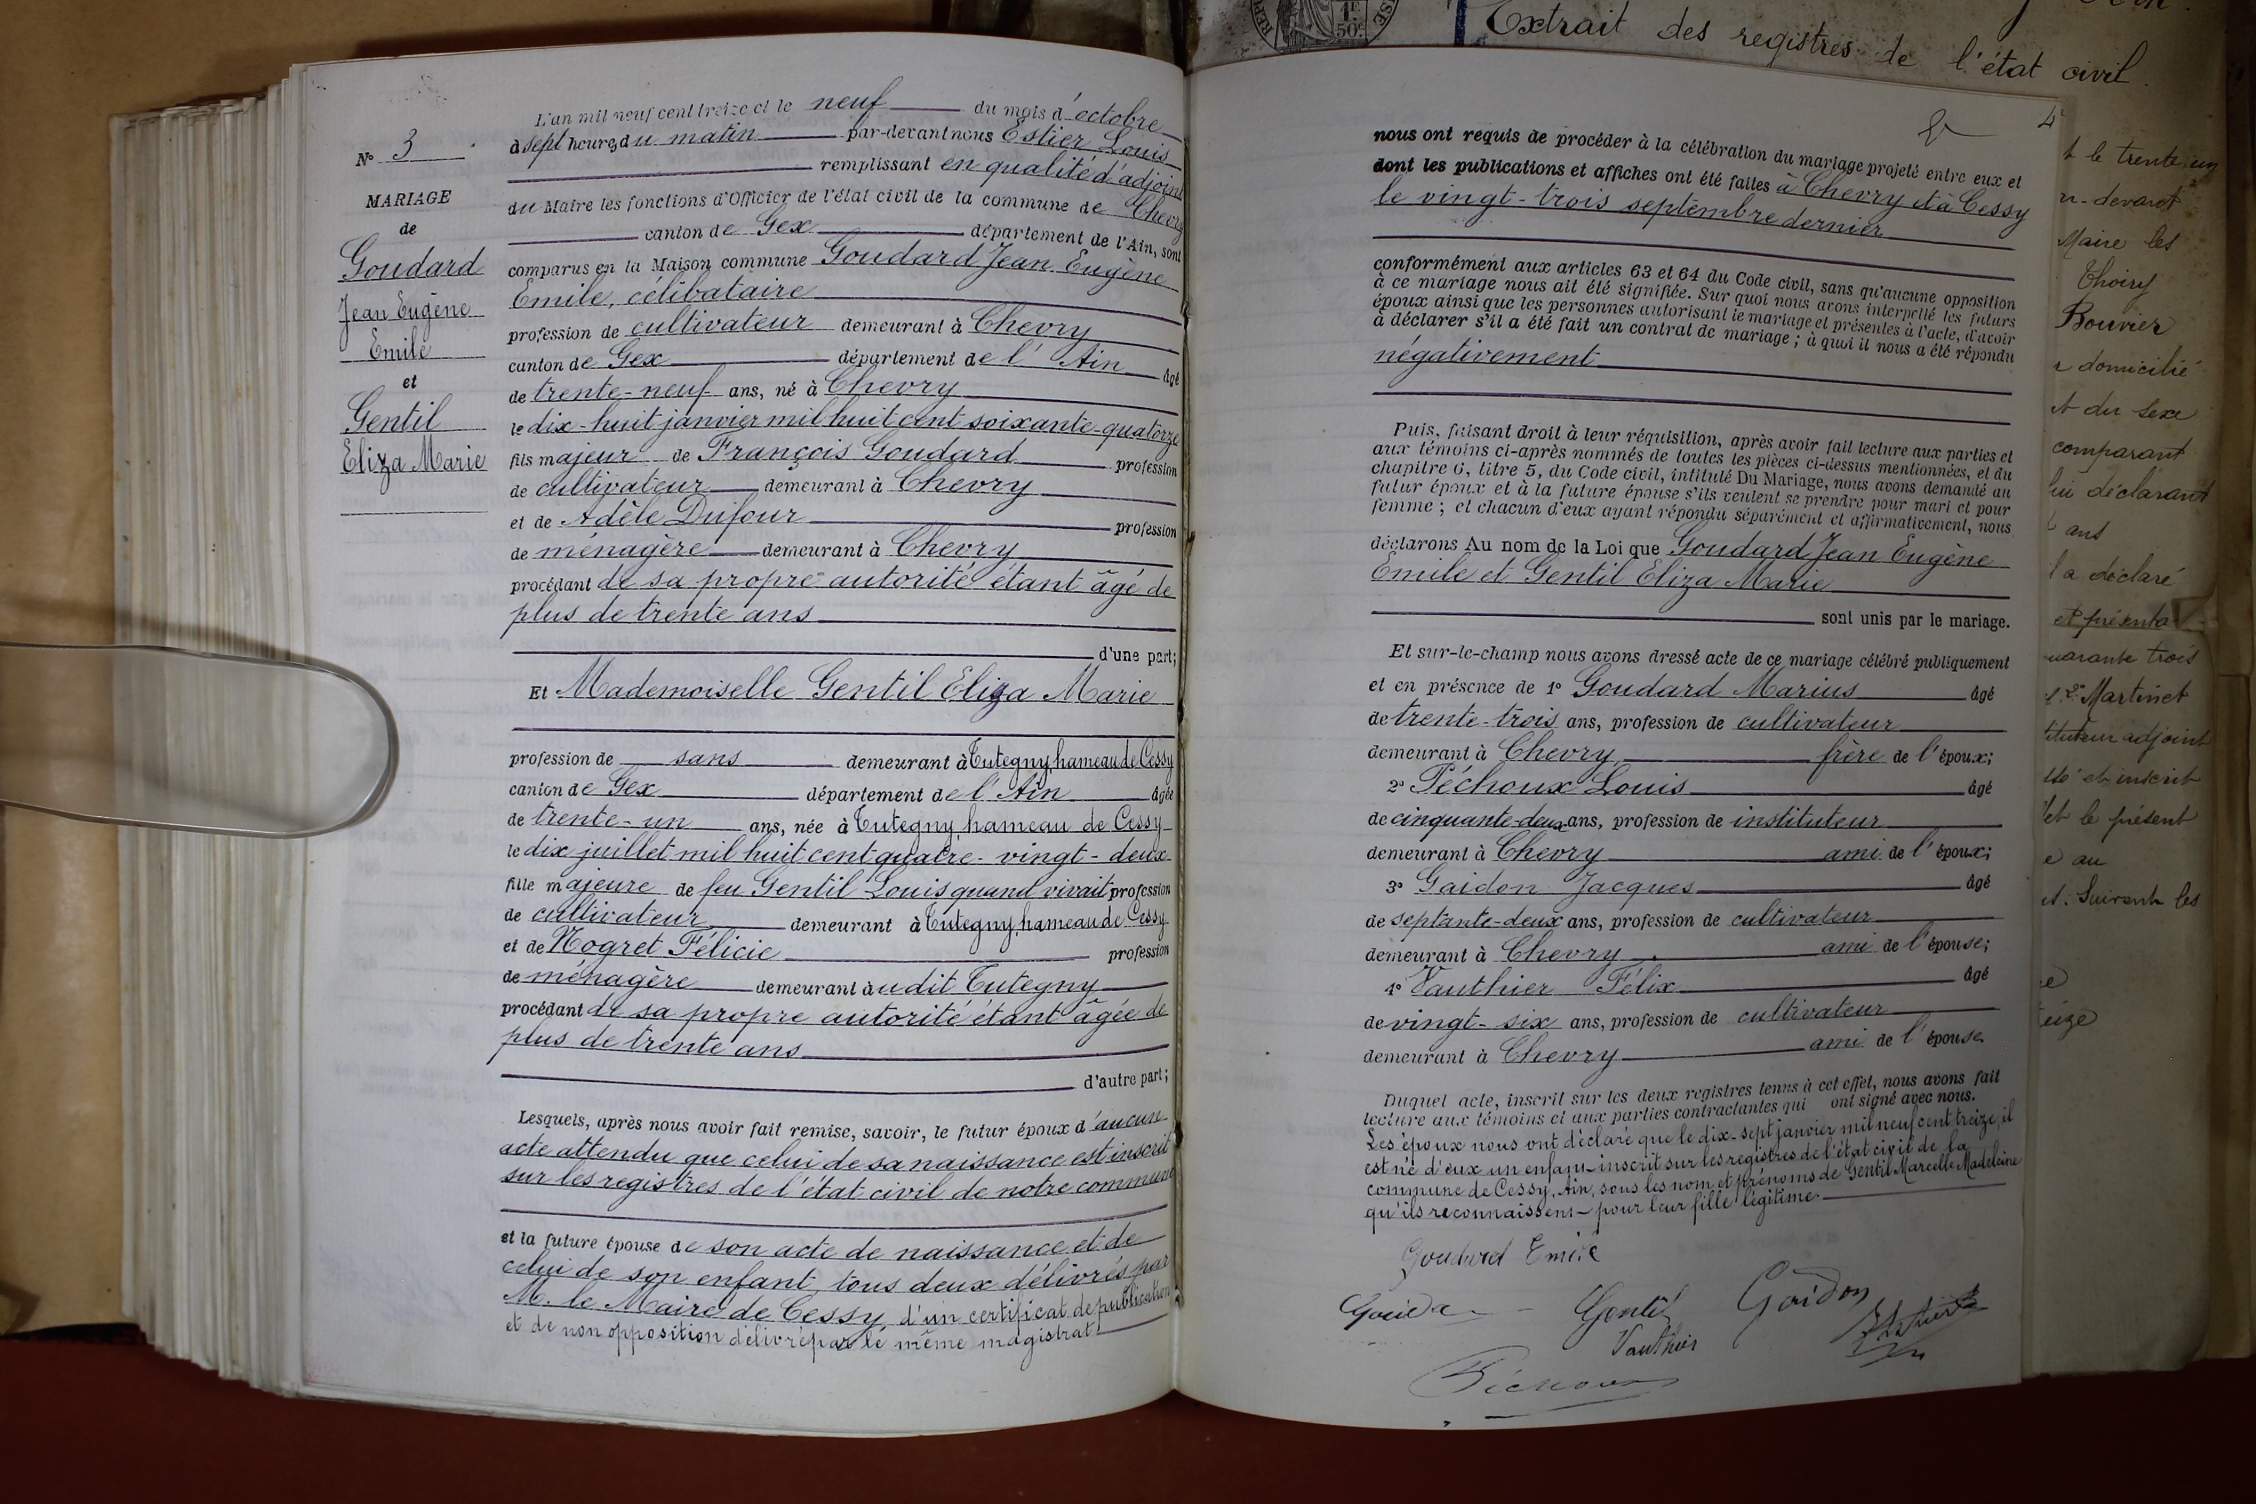 N° 3
MARIAGE
de
Goudard
Jean Eugène
Emile
et
Gentil
Eliza Marie
L'an mil neuf cent treize et le neuf du mois d'octobre
à sept heures du matin par-devant nous Estier Louis
remplissant en qualité d'adjoint
du Maire les fonctions d'Officier de l'état civil de la commune de Chevry
canton de Gex département de l'Ain, sont
comparus en la Maison commune Goudard Jean Eugène
Emile, célibataire
profession de cultivateur demeurant à Chevry
canton de Gex département de l'Ain âgé
de trente-neuf ans, né à Chevry
le dix-huit janvier mil huit cent soixante-quatorze
fils majeur de François Goudard profession
de cultivateur demeurant à Chevry
et de Adèle Dufour profession
de ménagère demeurant à Chevry
procédant de sa propre autorité étant âgé de
plus de trente ans
d'une part;
Et Mademoiselle Gentil Eliza Marie
profession de sans demeurant à Tutegny, hameau de Cessy
canton de Gex département de l'Ain âgée
de trente-un ans, née à Tutegny, hameau de Cessy
le dix juillet mil huit cent quatre-vingt-deux
fille majeure de feu Gentil Louis quand vivait profession
de cultivateur demeurant à Tutegny, hameau de Cessy
et de Nogret Félicie profession
de ménagère demeurant audit Tutegny
procédant de sa propre autorité étant âgée de
plus de trente ans
d'autre part;
Lesquels, après nous avoir fait remise, savoir, le futur époux d'aucun
acte attendu que celui de sa naissance est inscrit
sur les registres de l'état civil de notre commune
et la future épouse de son acte de naissance et de
celui de son enfant tous deux délivrés par
M. le Maire de Cessy, d'un certificat de publication
et de non opposition délivré par le même magistrat
nous ont requis de procéder à la célébration du mariage projeté entre eux et
dont les publications et affiches ont été faites à Chevry et à Cessy
le vingt-trois septembre dernier
conformément aux articles 63 et 64 du Code civil, sans qu'aucune opposition
à ce mariage nous ait été signifiée. Sur quoi nous avons interpellé les futurs
époux ainsi que les personnes autorisant le mariage et présentes à l'acte, d'avoir
à déclarer s'il a été fait un contrat de mariage ; à quoi il nous a été répondu
négativement
Puis, faisant droit à leur réquisition, après avoir fait lecture aux parties et
aux témoins ci-après nommés de toutes les pièces ci-dessus mentionnées, et du
chapitre 6, titre 5, du Code civil, intitulé Du Mariage, nous avons demandé au
futur époux et à la future épouse s'ils veulent se prendre pour mari et pour
femme ; et chacun d'eux ayant répondu séparément et affirmativement, nous
déclarons Au nom de la Loi que Goudard Jean Eugène
Emile et Gentil Eliza Marie
sont unis par le mariage.
Et sur-le-champ nous avons dressé acte de ce mariage célébré publiquement
et en présence de 1° Goudard Marius âgé
de trente-trois ans, profession de cultivateur
demeurant à Chevry frère de l'époux;
2° Péchoux Louis âgé
de cinquante-deux ans, profession de instituteur
demeurant à Chevry ami de l'époux;
3° Gaidon Jacques âgé
de septante-deux ans, profession de cultivateur
demeurant à Chevry ami de l'épouse;
4° Vauthier Félix âgé
de vingt-six ans, profession de cultivateur
demeurant à Chevry ami de l'épouse
Duquel acte, inscrit sur les deux registres tenus à cet effet, nous avons fait
lecture aux témoins et aux parties contractantes qui ont signé avec nous.
Les époux nous ont déclaré que le dix-sept janvier mil neuf cent treize, il
est né d'eux un enfant inscrit sur les registres de l'état civil de la
commune de Cessy, Ain, sous les nom et prénoms de Gentil Marcelle Madeleine
qu'ils reconnaissent pour leur fille légitime.
Goudard Emile
Gentil Gaidon
Vauthier
Péchoux
Extrait des registres de l'état civil.
le trente un
devant
Maire les
Thoiry
Bouvier
domicilié
et du sexe
comparant
lui déclarant
ans
a déclaré
et présenta
quarante trois
2° Martinet
adjoint
et inscrit
et le présent
au
Suivent les